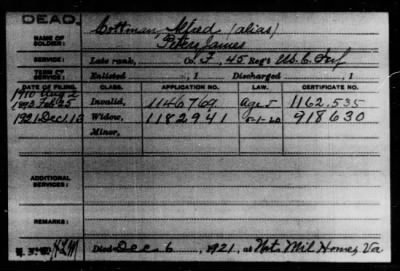 DEAD.
Cottman, Alfred (alias)
NAME OF SOLDIER: Peters James
SERVICE: Late rank, Co. F, 45 Reg't U.S.C. Inf
TERM OF SERVICE: Enlisted , 1 Discharged , 1
DATE OF FILING. CLASS. APPLICATION NO. LAW. CERTIFICATE NO.
1910 Aug 2
1893 Feb 25 Invalid, 1146769 Age 5 1162,535
1921 Dec 1 Widow, 1182941 5-1-20 918630
Minor,
ADDITIONAL SERVICES:
REMARKS:
Died Dec 6, 1921, at Nat. Mil Home, Va